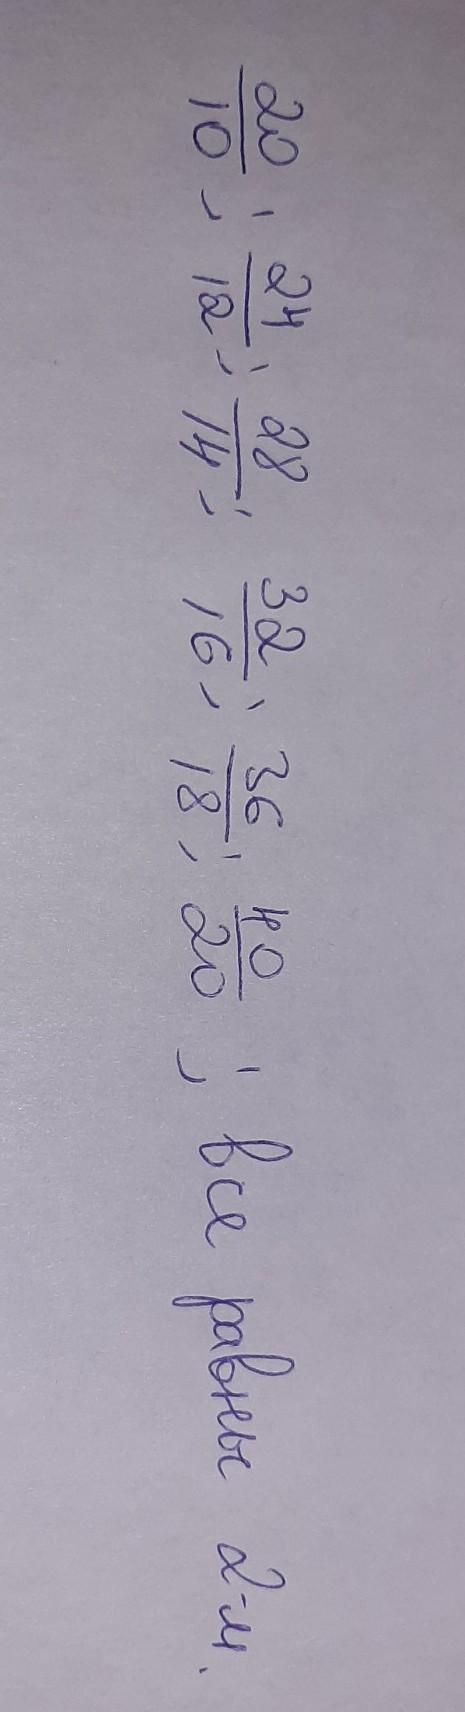 20/10; 24/12; 28/14; 32/16; 36/18; 40/20; все равны 2-м.